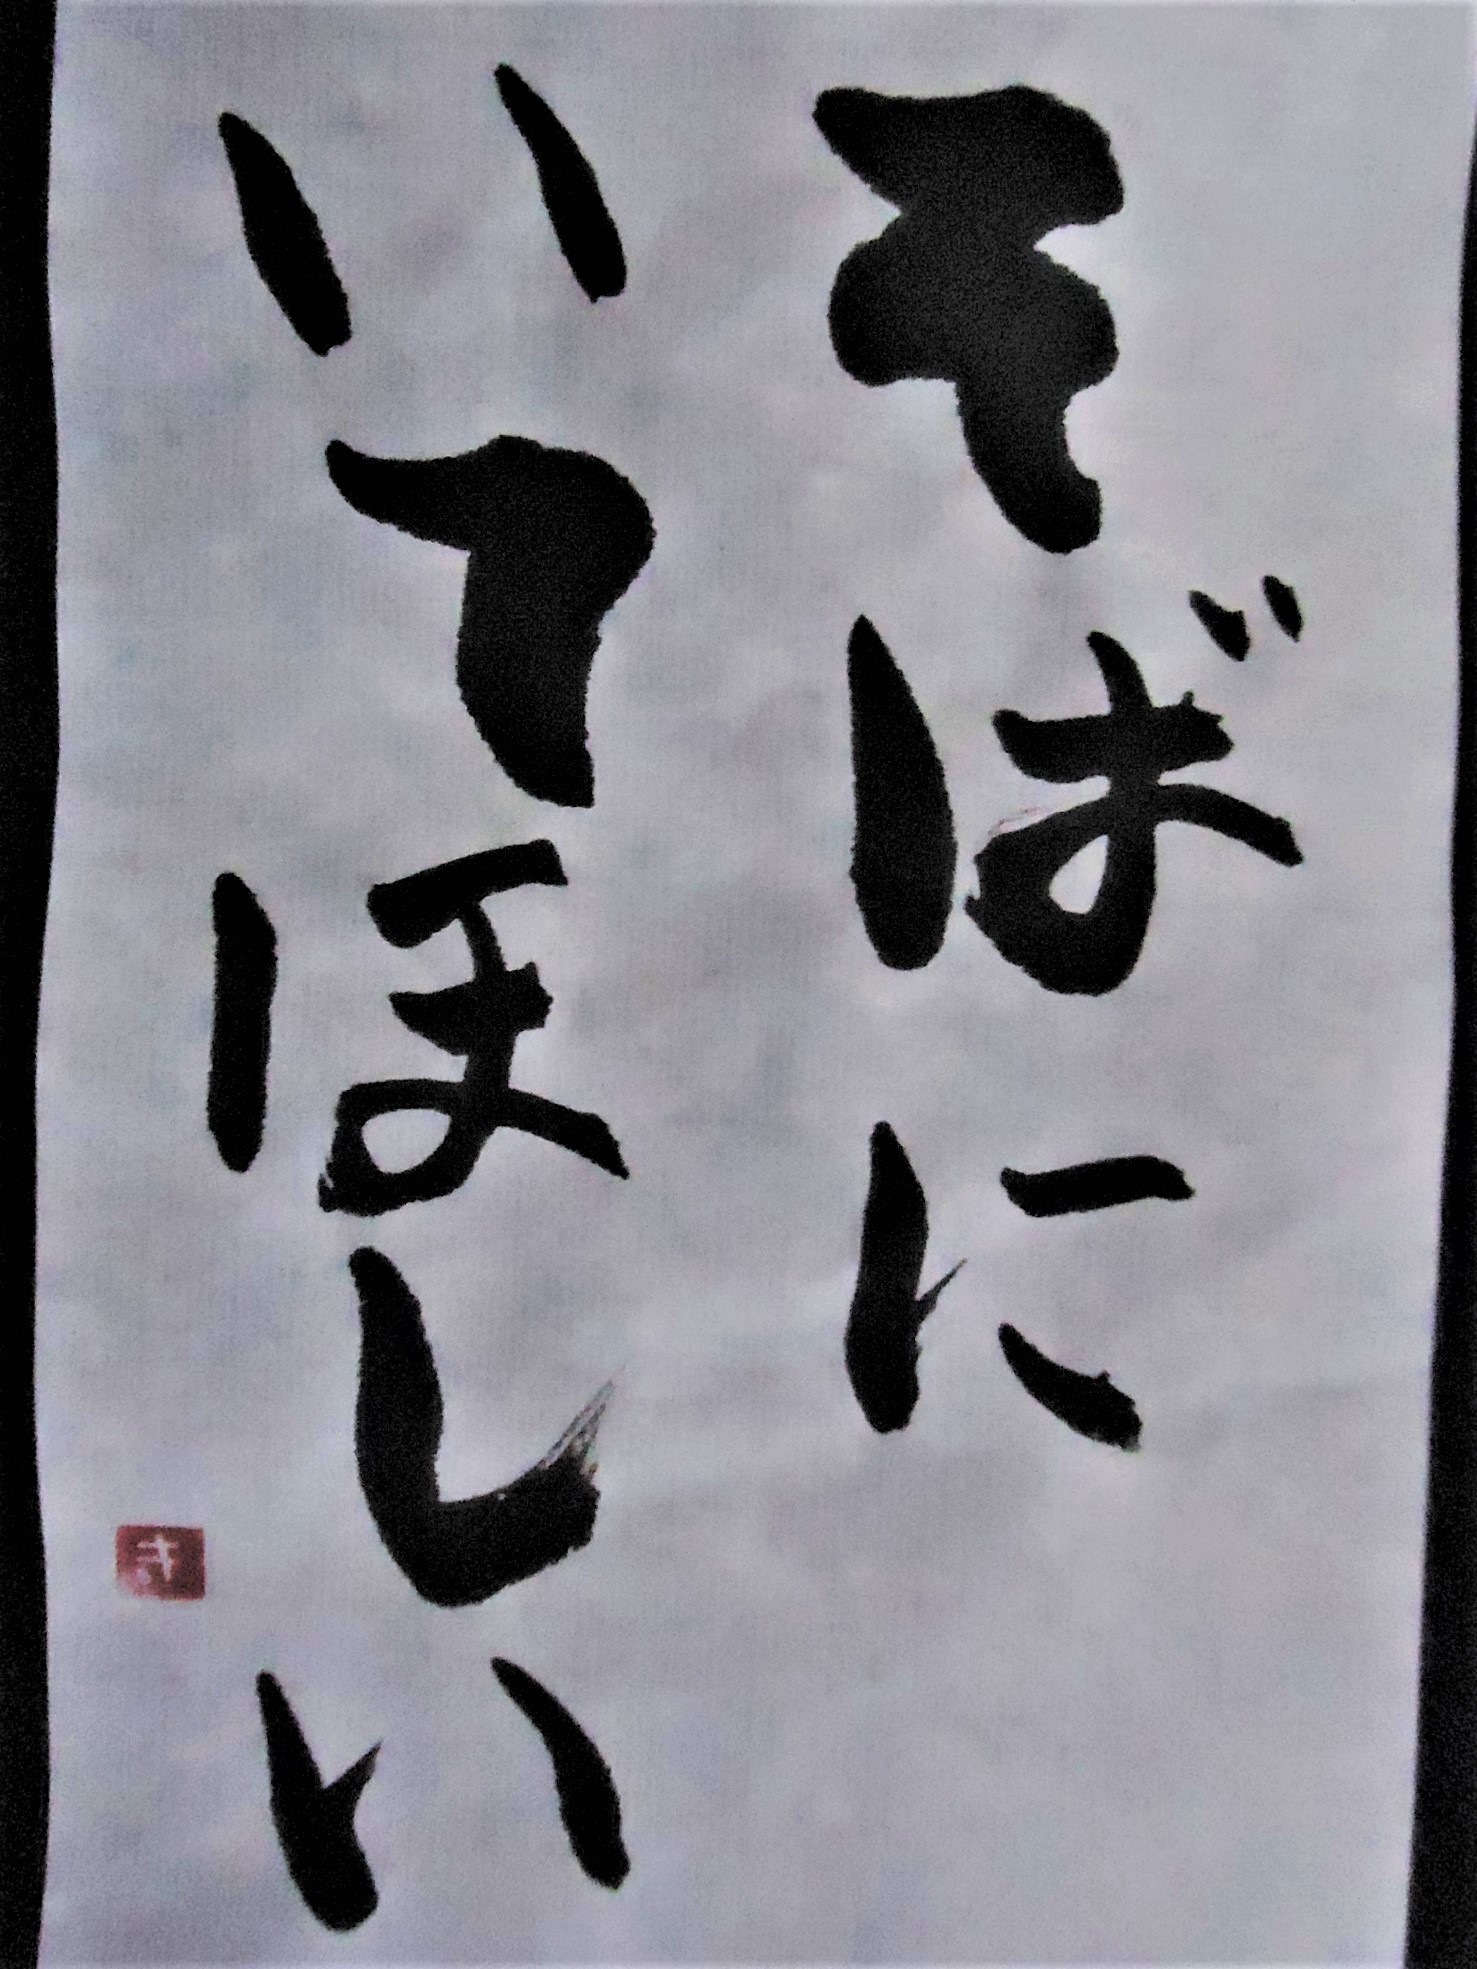 そばに
いてほしい
き